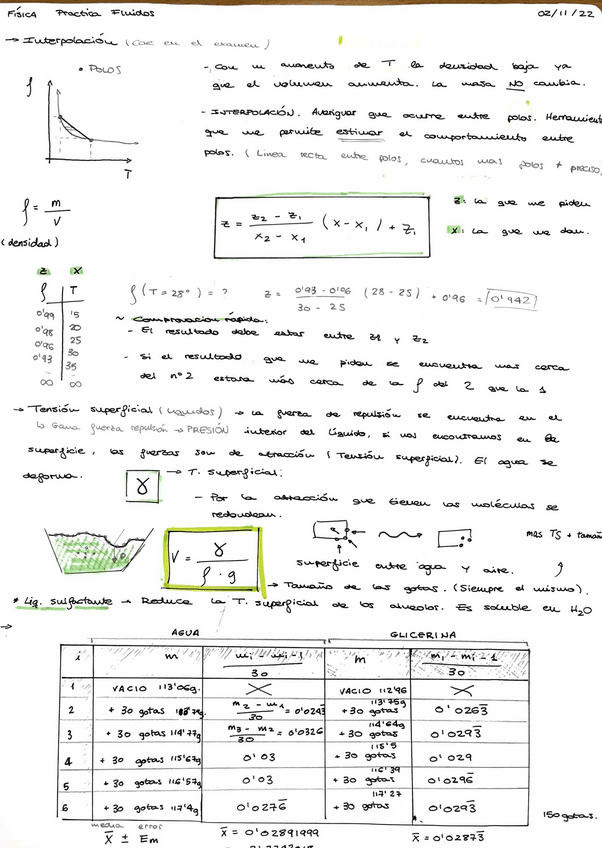 FÍSICA Practica Fluidos 02/11/22
→ Interpolación (Cae en el examen)
• POLOS
ρ
T
- Con un aumento de T la densidad baja ya
que el volumen aumenta. La masa NO cambia.
- INTERPOLACIÓN. Averiguar que ocurre entre polos. Herramienta
que me permite estimar el comportamiento entre
polos. (Linea recta entre polos, cuantos mas polos + preciso,
ρ = m / V
(densidad)
z = z2 - z1 / x2 - x1 (x - x1) + z1
z: la que me piden
x: La que me dan.
z x
ρ T
0'99 15
0'98 20
0'96 25
0'93 30
35
∞ ∞
ρ (T = 28°) = ? z = 0'93 - 0'96 / 30 - 25 (28 - 25) + 0'96 = 0'942
~ Comprovación rápida:
- El resultado debe estar entre z1 y z2
- Si el resultado que me piden se encuentra mas cerca
del nº 2 estara más cerca de la ρ del 2 que la 1
→ Tensión superficial (Liquidos) → La fuerza de repulsión se encuentra en el
↳ Gana fuerza repulsión → PRESIÓN interior del líquido, si nos encontramos en la
superficie, las fuerzas son de atracción (Tensión superficial). El agua se
deforma.
γ → T. Superficial:
- Por la atracción que tienen las moléculas se
redondean.
V = γ / ρ · g
mas TS + tamañ
superficie entre agua y aire.
→ Tamaño de las gotas. (Siempre el mismo).
* Liq. sulfactante → Reduce la T. superficial de los alveolos. Es soluble en H2O
→
AGUA GLICERINA
i m mi - mi-1 / 30 m mi - mi-1 / 30
1 VACIO 113'06g. VACIO 112'96
2 + 30 gotas m2 - m1 / 30 = 0'0243 113'75g + 30 gotas 0'0263
3 + 30 gotas 114'77g m3 - m2 / 30 = 0'0326 114'64g + 30 gotas 0'0293
4 + 30 gotas 115'67g 0'03 115'5 + 30 gotas 0'029
5 + 30 gotas 116'57g 0'03 116'39 + 30 gotas 0'0296
6 + 30 gotas 117'4g 0'0276 117'27 + 30 gotas 0'0293
150 gotas.
media error
X ± Em
x = 0'02891999 x = 0'02873